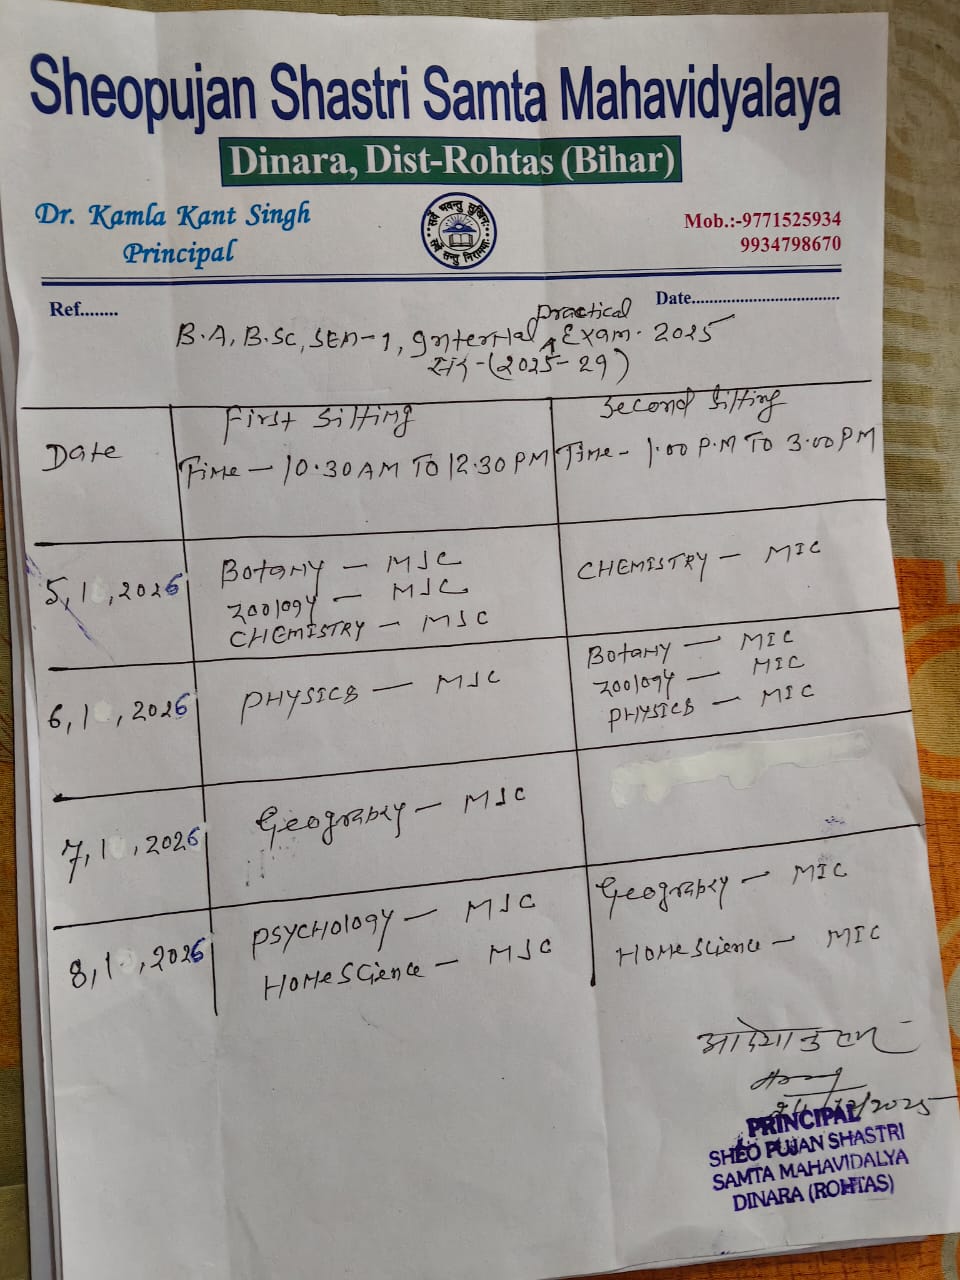 Sheopujan Shastri Samta Mahavidyalaya
Dinara, Dist-Rohtas (Bihar)
Dr. Kamla Kant Singh
Principal
सर्वे भवन्तु सुखिनः
सर्वे सन्तु निरामयाः
Mob.:-9771525934
9934798670
Ref........
Date...................................
B.A, B.Sc, SEM-1, Internal Practical Exam. 2025
सत्र-(2025-29)
Date
First Sitting
Time - 10.30 AM TO 12.30 PM
Second Sitting
Time - 1.00 P.M TO 3.00 PM
5, 1 , 2026
Botany - MJC
Zoology - MJC
CHEMISTRY - MJC
CHEMISTRY - MIC
6, 1 , 2026
PHYSICS - MJC
Botany - MIC
Zoology - MIC
PHYSICS - MIC
7, 1 , 2026
Geograpxy - MJC
8, 1 , 2026
PSYCHology - MJC
Home Science - MJC
Geograpxy - MIC
Home Science - MIC
आदेशानुसार
/2025
PRINCIPAL
SHEO PUJAN SHASTRI
SAMTA MAHAVIDALYA
DINARA (ROHTAS)